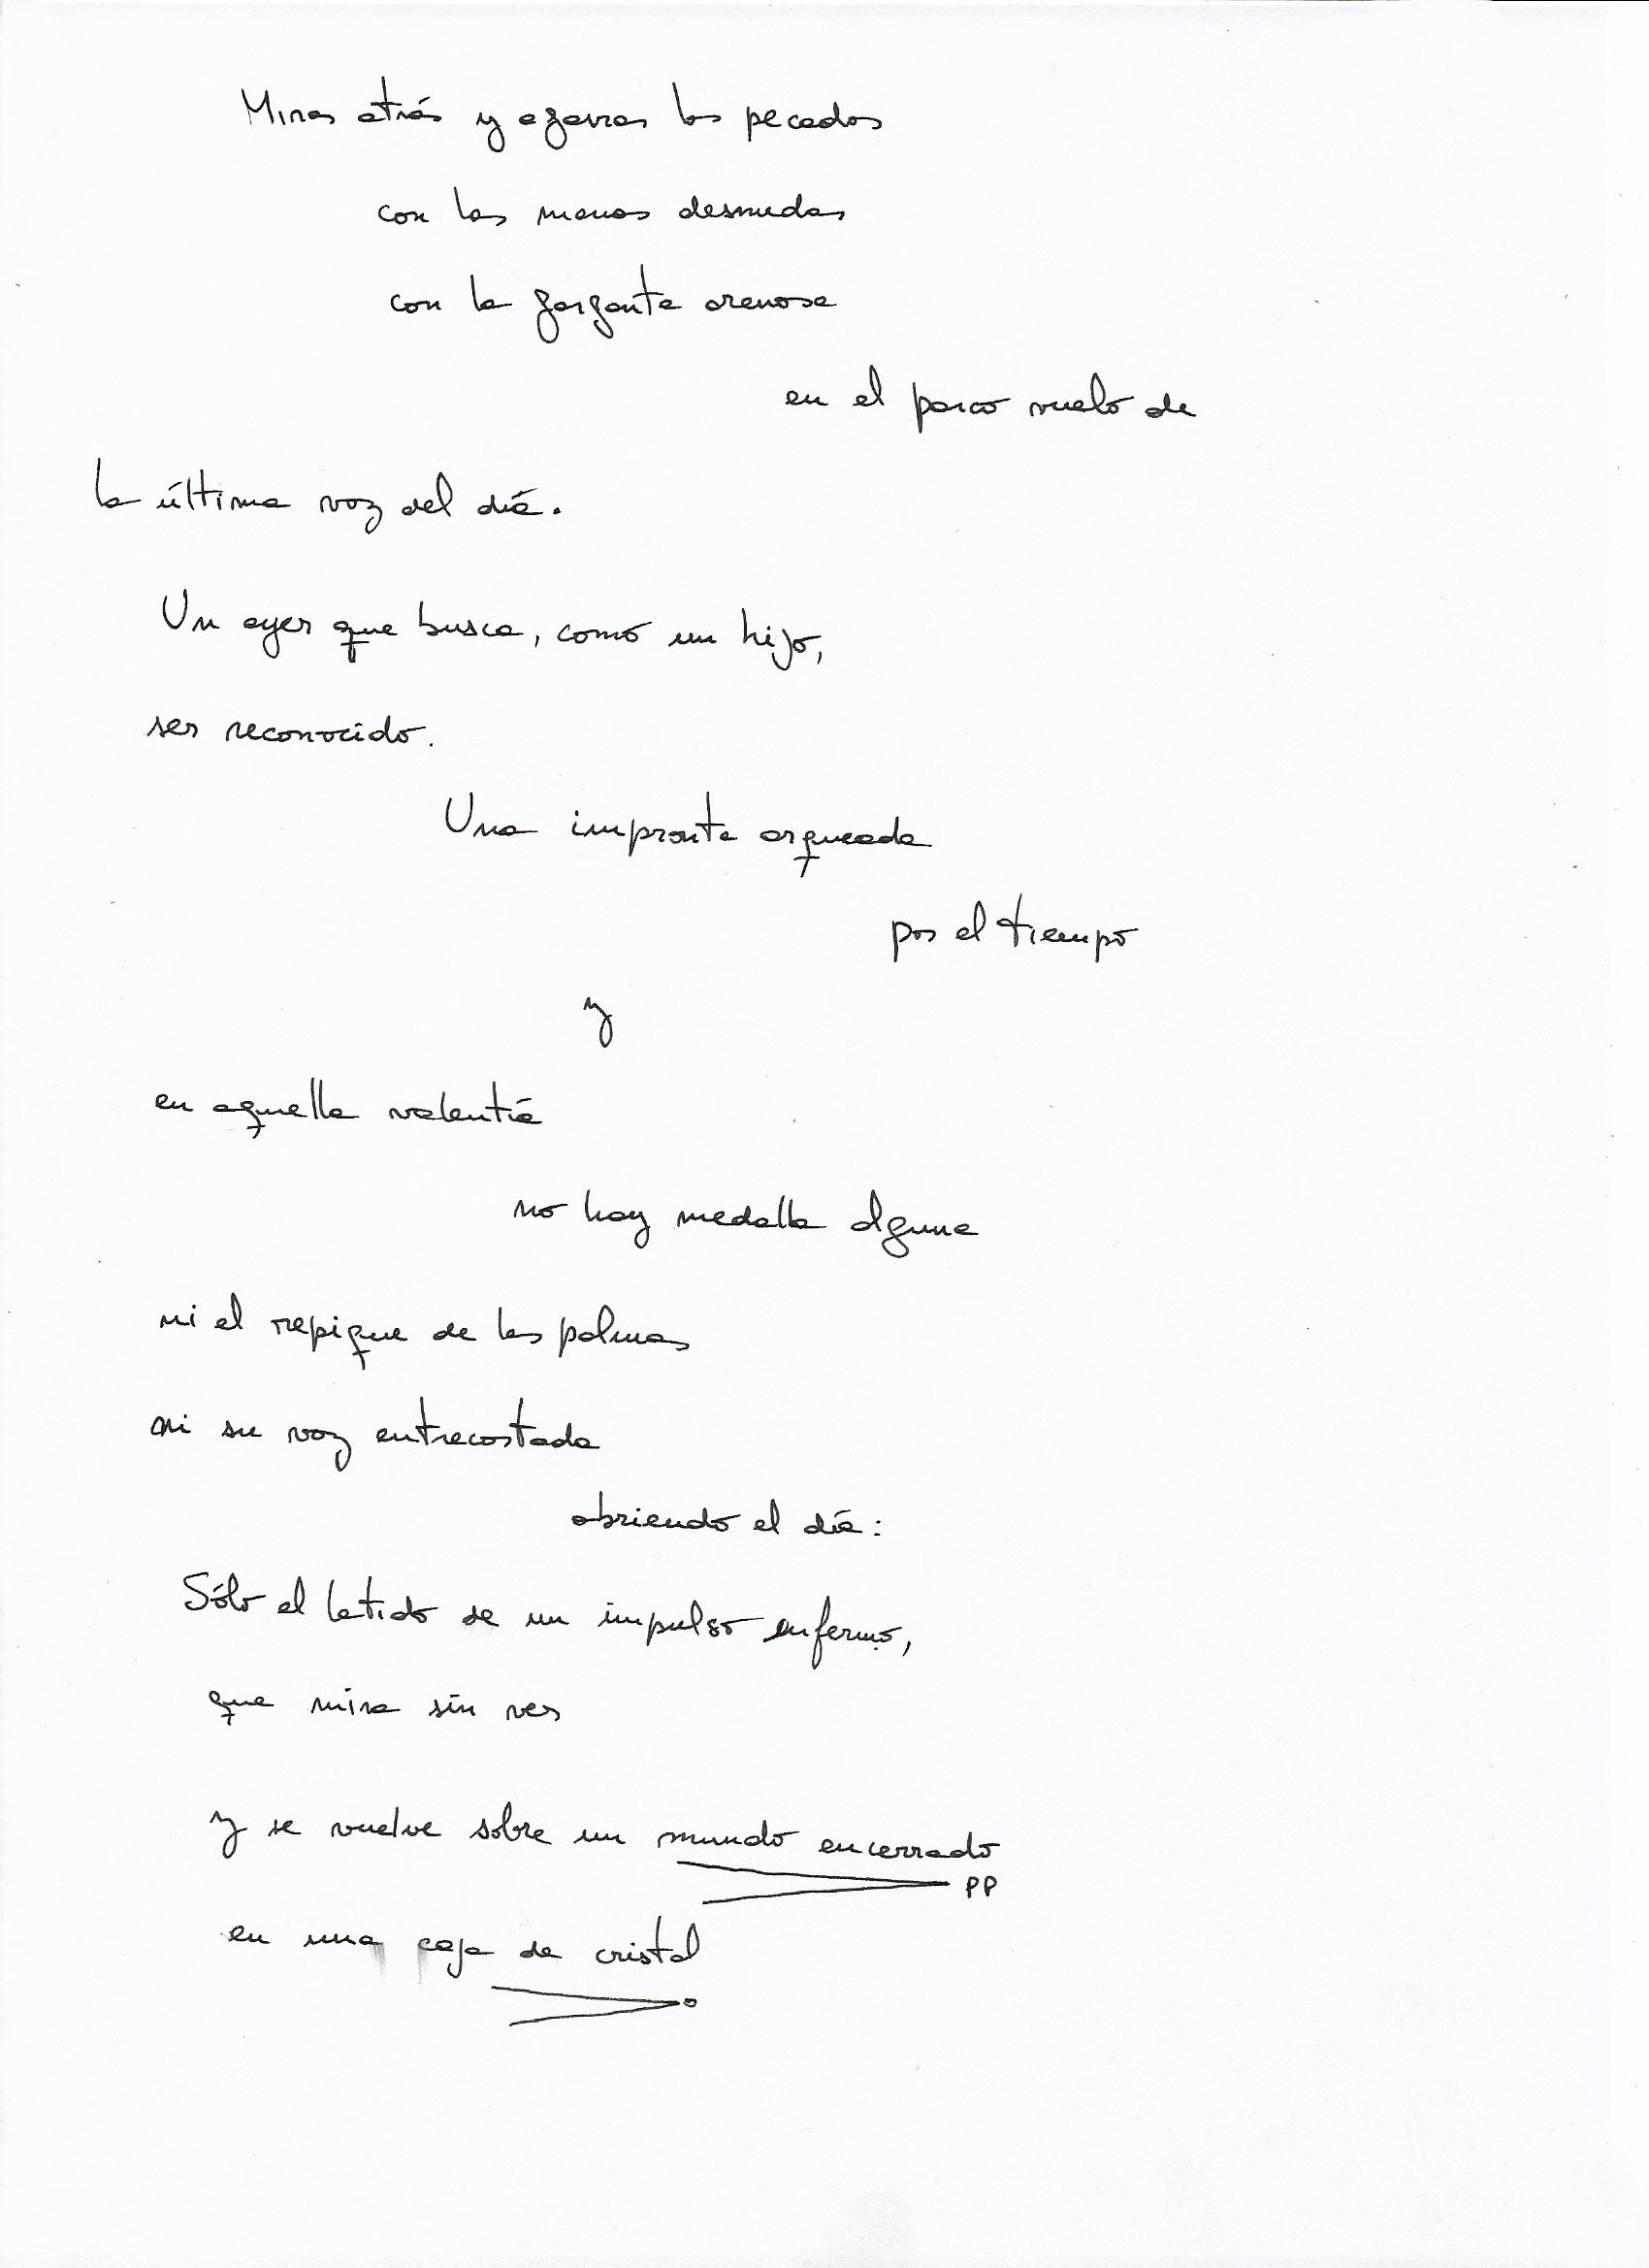 Miras atrás y agarras los pecados
con las manos desnudas
con la garganta arenosa
en el parco vuelo de
la última voz del día.
Un ayer que busca, como un hijo,
ser reconocido.
Una impronta arqueada
por el tiempo
y
en aquella valentía
no hay medalla alguna
ni el repique de las palmas
ni su voz entrecostada
abriendo el día:
Sólo el latido de un impulso enfermo,
que mira sin ver
y se vuelve sobre un mundo encerrado
pp
en una caja de cristal